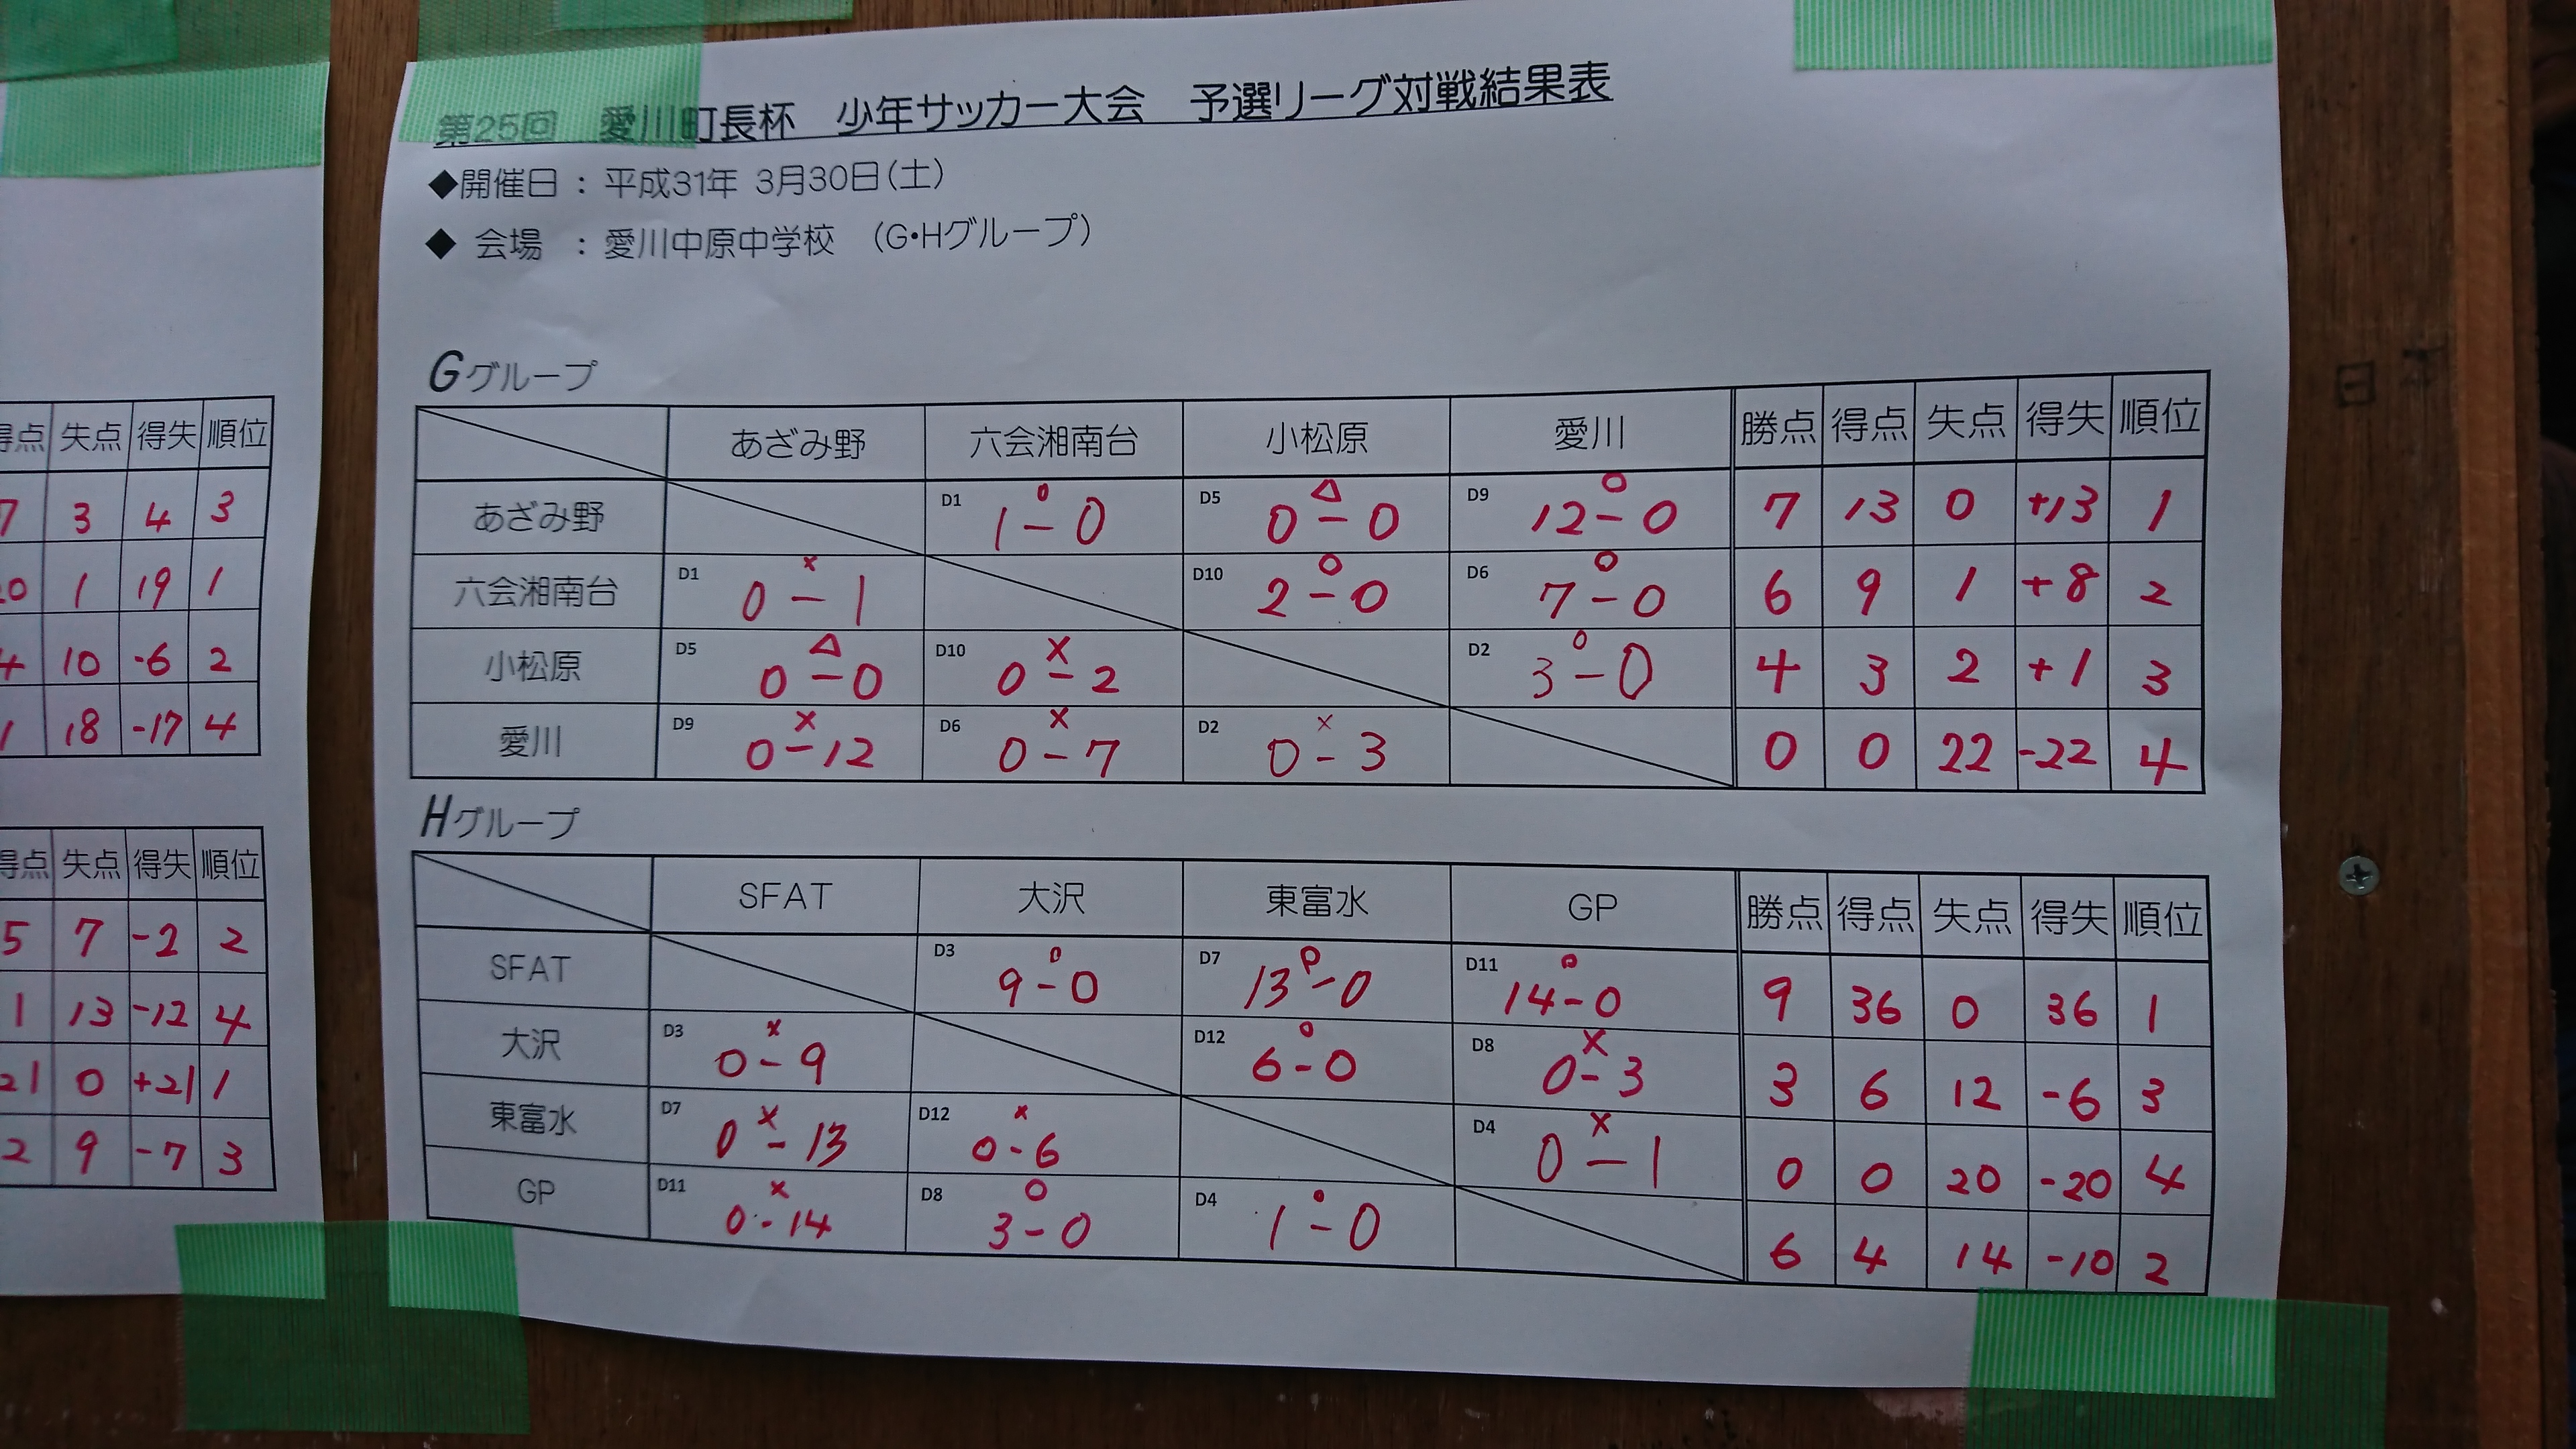 第25回 愛川町長杯 少年サッカー大会 予選リーグ対戦結果表
◆開催日 : 平成31年 3月30日(土)
◆ 会場 : 愛川中原中学校 (G・Hグループ)
Gグループ
あざみ野 六会湘南台 小松原 愛川 勝点 得点 失点 得失 順位
あざみ野 D1 ○ 1-0 D5 △ 0-0 D9 ○ 12-0 7 13 0 +13 1
六会湘南台 D1 × 0-1 D10 ○ 2-0 D6 ○ 7-0 6 9 1 +8 2
小松原 D5 △ 0-0 D10 × 0-2 D2 ○ 3-0 4 3 2 +1 3
愛川 D9 × 0-12 D6 × 0-7 D2 × 0-3 0 0 22 -22 4
Hグループ
SFAT 大沢 東富水 GP 勝点 得点 失点 得失 順位
SFAT D3 ○ 9-0 D7 ○ 13-0 D11 ○ 14-0 9 36 0 36 1
大沢 D3 × 0-9 D12 ○ 6-0 D8 × 0-3 3 6 12 -6 3
東富水 D7 × 0-13 D12 × 0-6 D4 × 0-1 0 0 20 -20 4
GP D11 × 0-14 D8 ○ 3-0 D4 ○ 1-0 6 4 14 -10 2
得点 失点 得失 順位
7 3 4 3
20 1 19 1
4 10 -6 2
1 18 -17 4
得点 失点 得失 順位
5 7 -2 2
1 13 -12 4
21 0 +21 1
2 9 -7 3